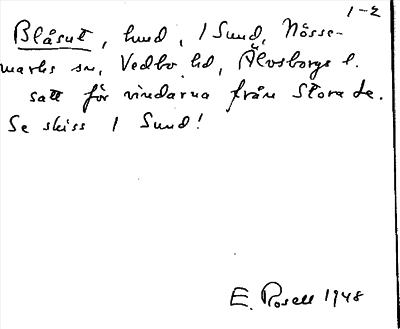 1-2
Blåsut, hmd, 1 Sund, Nösse-
marks sn, Vedbo hd, Älvsborgs l.
satt för vindarna från Stora Le.
Se skiss 1 Sund!
E. Rosell 1948